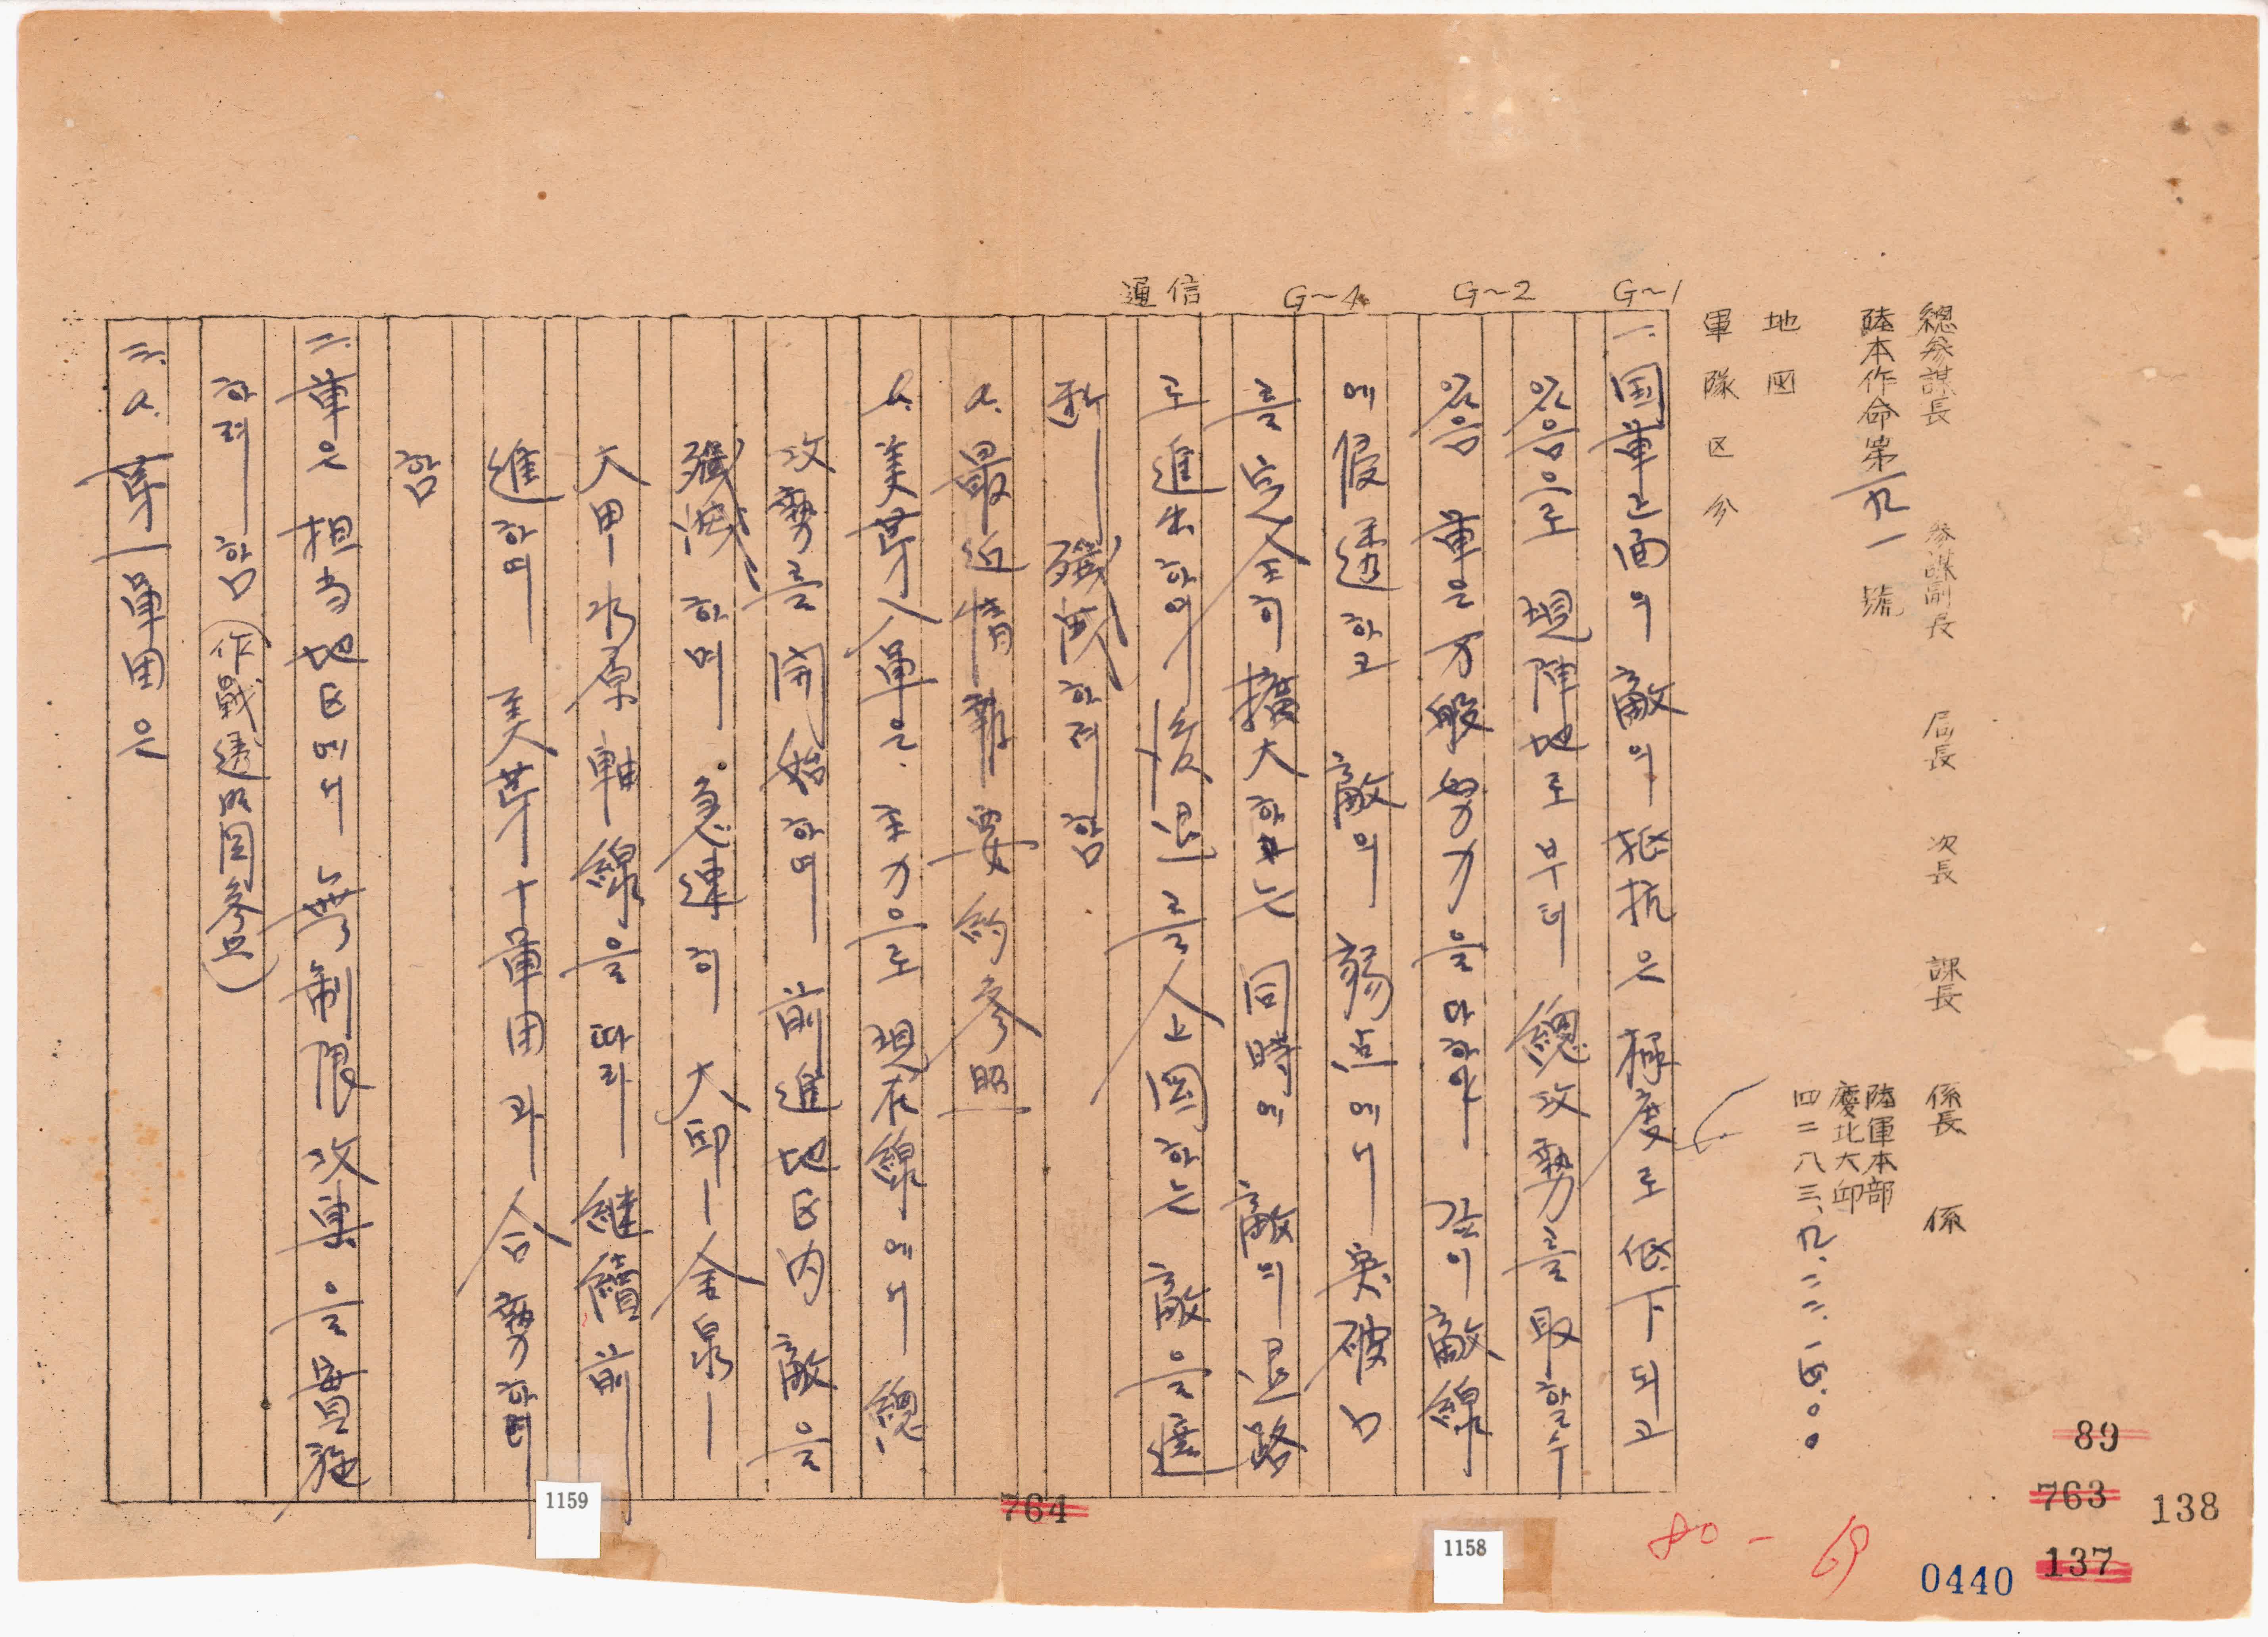 總參謀長 參謀副長 局長 次長 課長 係長 係
陸本作命第一九一號
陸軍本部
慶北大邱
四二八三、九、二二、一五.○○
地図
軍隊区分
G~1
G~2
G~4
通信
一. 国軍正面의 敵의 抵抗은 極度로 低下되고
있음으로 現陣地로부터 總攻勢를 取할수
있음 軍은 万般努力을 다하야 같이 敵線
에 侵透하고 敵의 弱点에서 突破口
를 完全히 擴大하는 同時에 敵의 退路
로 進出하여 後退를 企圖하는 敵을 遮
断 殲滅하려함
a. 最近情報要約參照
b. 美第八軍은 主力으로 現在線에서 總
攻勢를 開始하여 前進地区内 敵을
殲滅하며 急速히 大邱ー金泉ー
大田ー水原軸線을 따라 継續前
進하여 美第十軍団과 合勢하려
함
二. 軍은 担当地区에서 無制限攻擊을 實施
하려 함 (作戰透明図參照)
三. a. 第一軍団은
1159
764
1158
80-69
0440
89
763
137
138